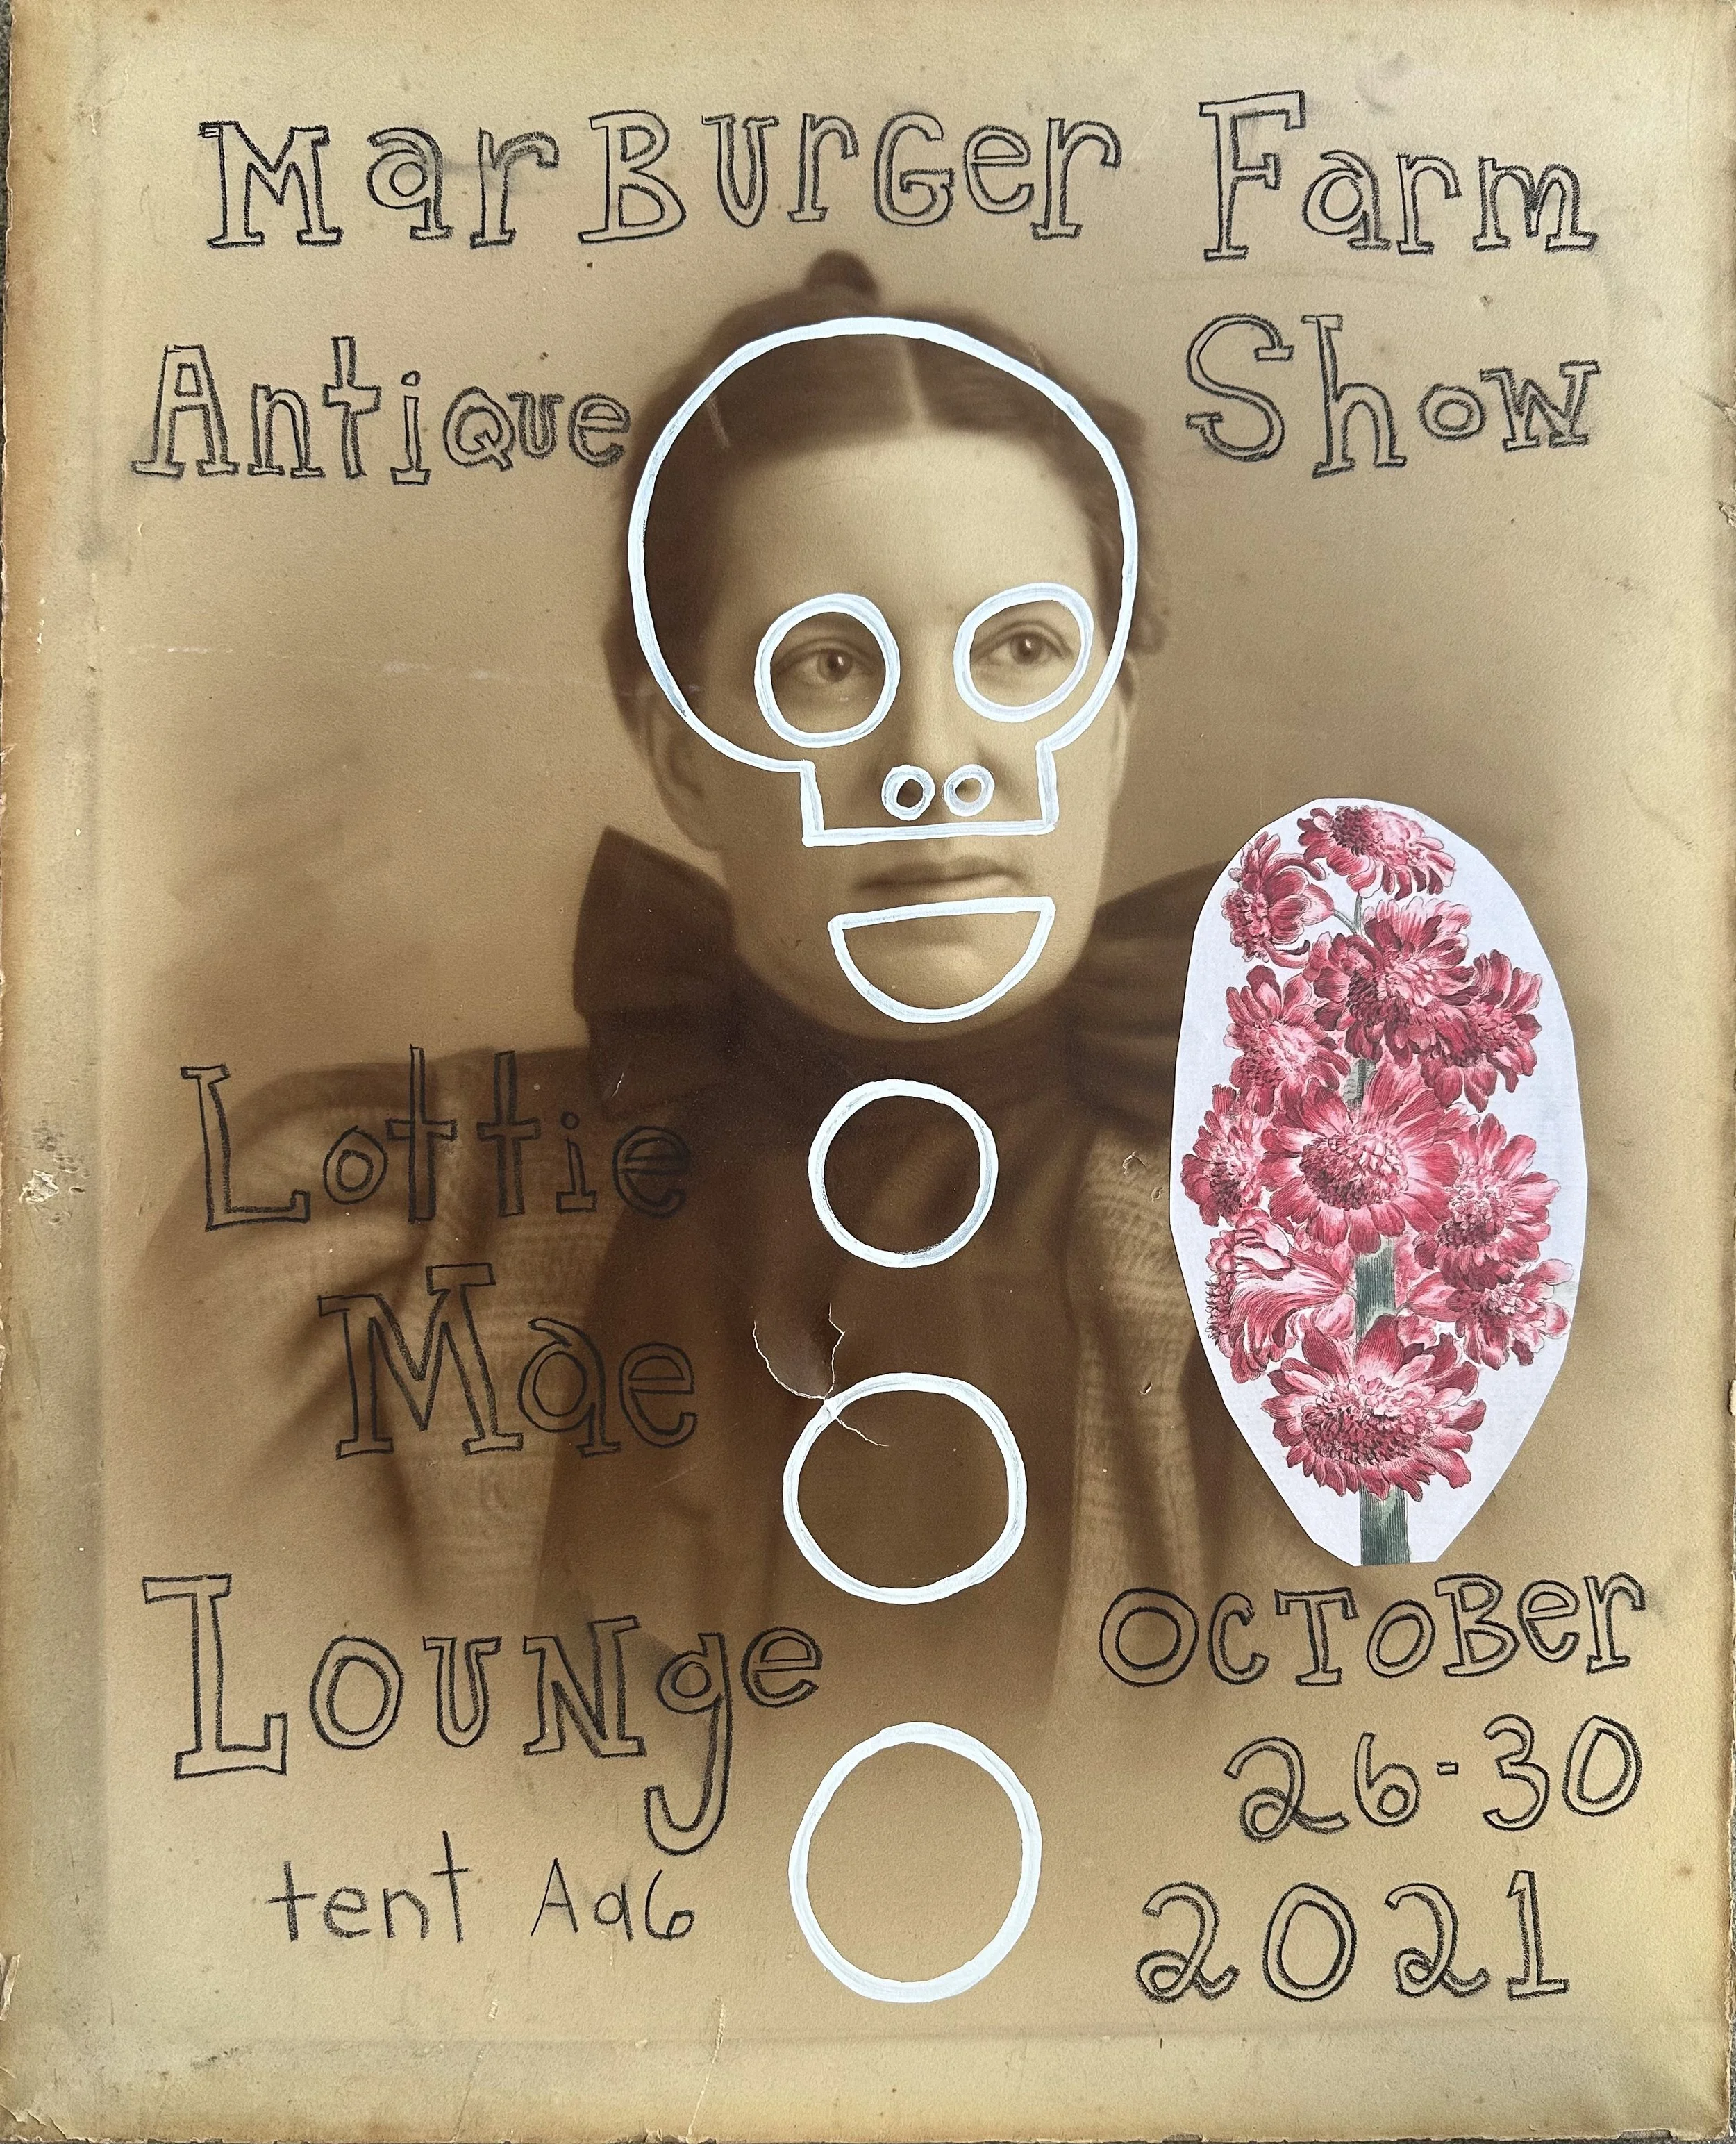 MarBurger Farm
Antique Show
Lottie
Mae
Lounge
tent Aa6
October
26-30
2021